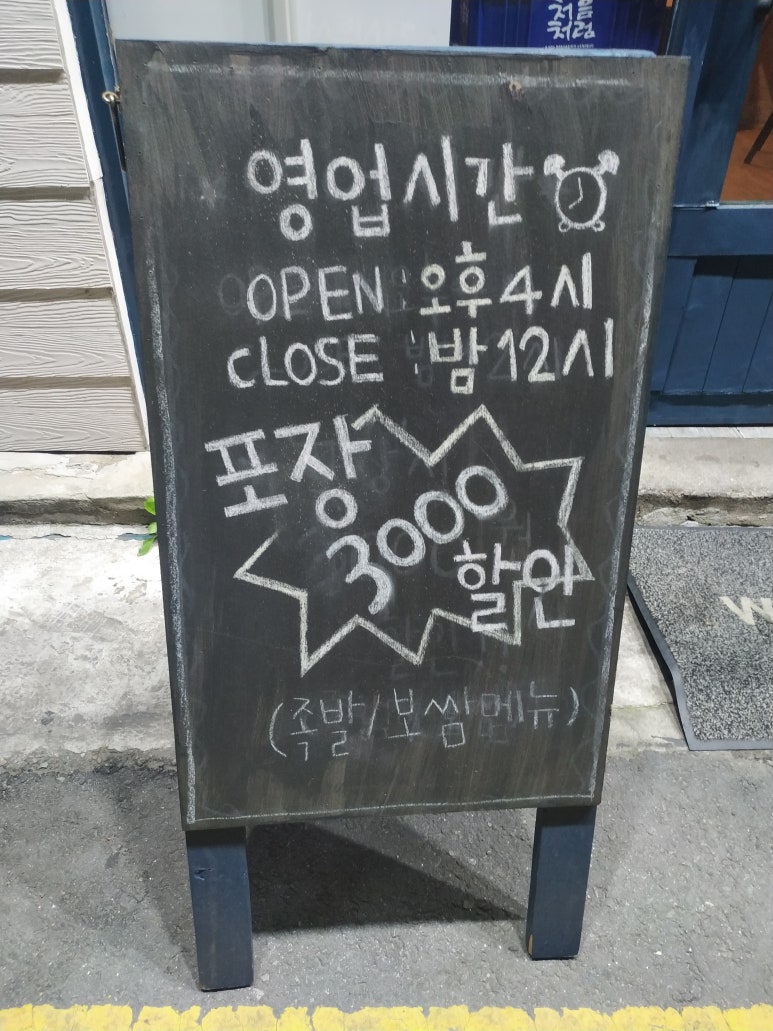 처음
처럼
영업시간
OPEN 오후 4시
CLOSE 밤 12시
포장
3000
할인
(족발/보쌈 메뉴)
W